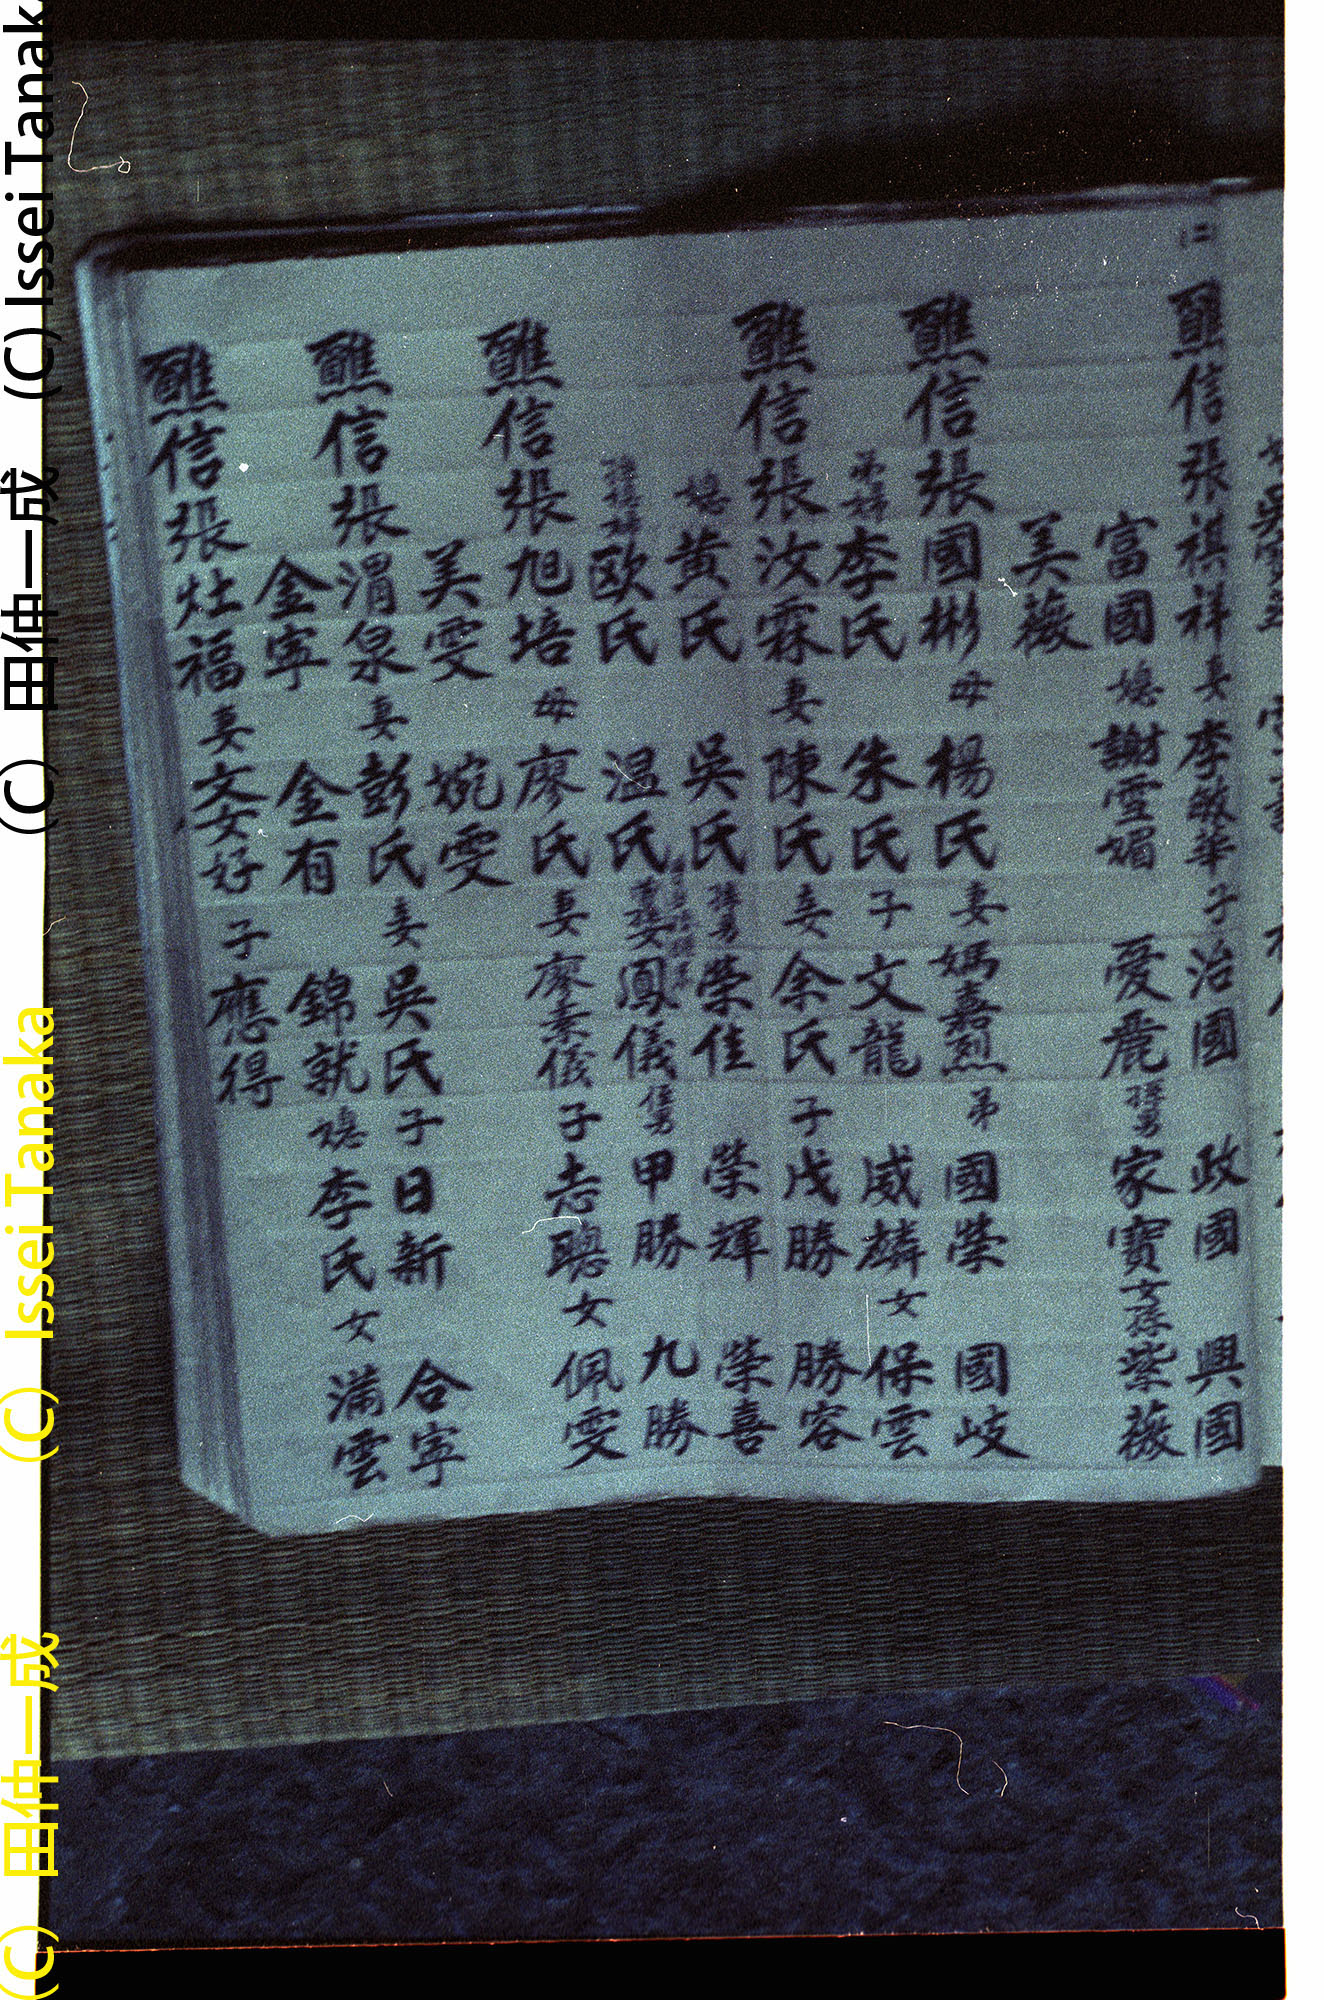 醮信張祺祥妻李敏華子治國 政國 興國
富國媳謝雪媚 愛麗孫男家寶女孫紫薇
美薇
醮信張國彬母楊氏妻馮嘉烈弟國榮 國岐
李氏 朱氏子文龍 威麟女保雲
醮信張汝霖妻陳氏妾余氏子戊勝 勝容
媳黃氏 吳氏孫男榮佳 榮輝 榮喜
歐氏 温氏 鳳儀 侄男甲勝 九勝
醮信張旭培母廖氏妻廖素儀子志聰女佩雯
美雯 婉雯
醮信張渭泉妻彭氏妾吳氏子日新 合寧
金寧 金有 錦就媳李氏女滿雲
醮信張灶福妻文女好子應得
(C) 田仲一成 (C) Issei Tanaka
(C) 田仲一成 (C) Issei Tanaka